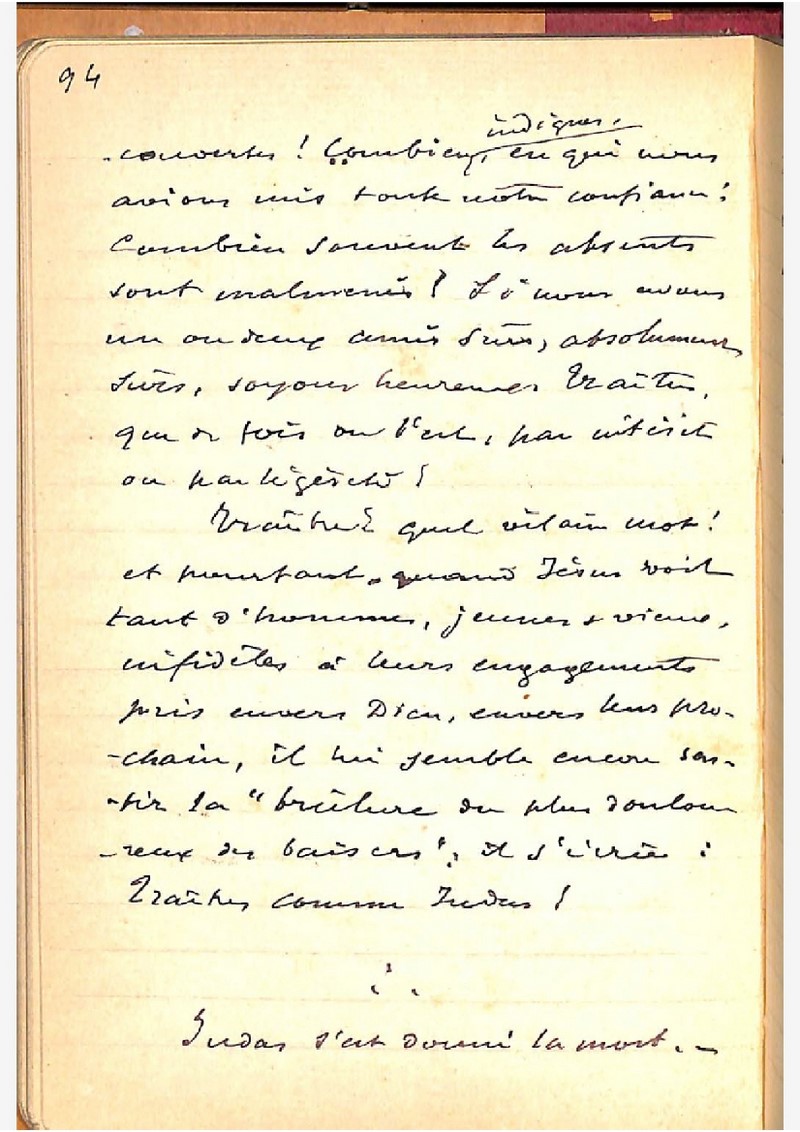 94
indignes,
-couvertes ! Combien, en qui nous
avions mis toute notre confiance !
Combien souvent les absents
sont malmenés ! Si nous avons
un ou deux amis sûrs, absolument
sûrs, soyons heureux Traîtres,
que de fois on l'est, par intérêt
ou par légèreté !
Traîtres quel vilain mot !
et pourtant, quand Jésus voit
tant d'hommes, jeunes & vieux,
infidèles à leurs engagements
pris envers Dieu, envers leur pro-
-chain, il lui semble encore sen-
-tir la "brûlure du plus doulou
-reux des baisers", il s'écrie :
Traîtres comme Judas !
Judas s'est donné la mort. –